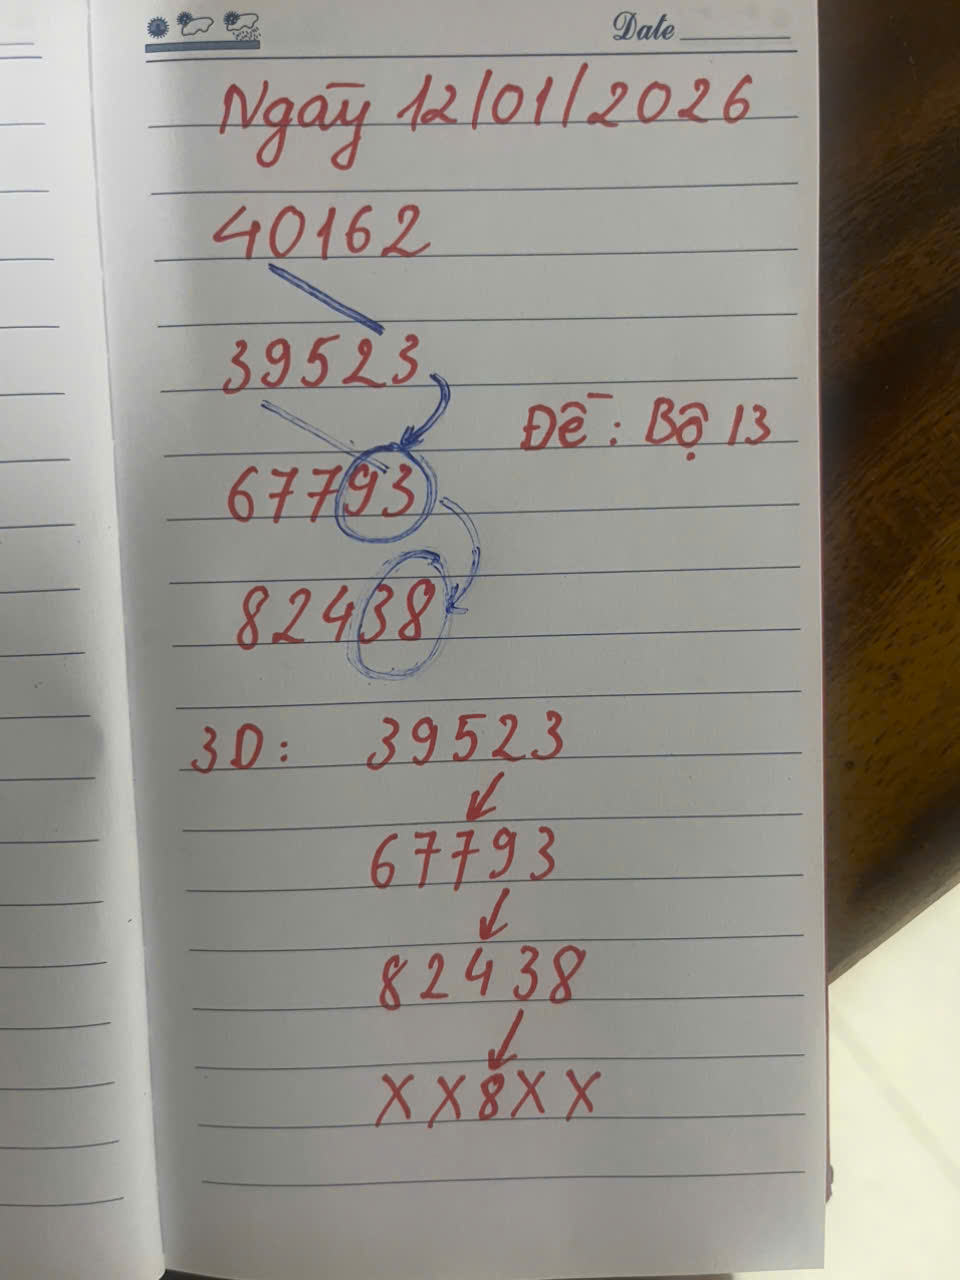 Date
Ngày 12/01/2026
40162
39523
Đề: Bộ 13
67793
82438
3D: 39523
67793
82438
XX8XX